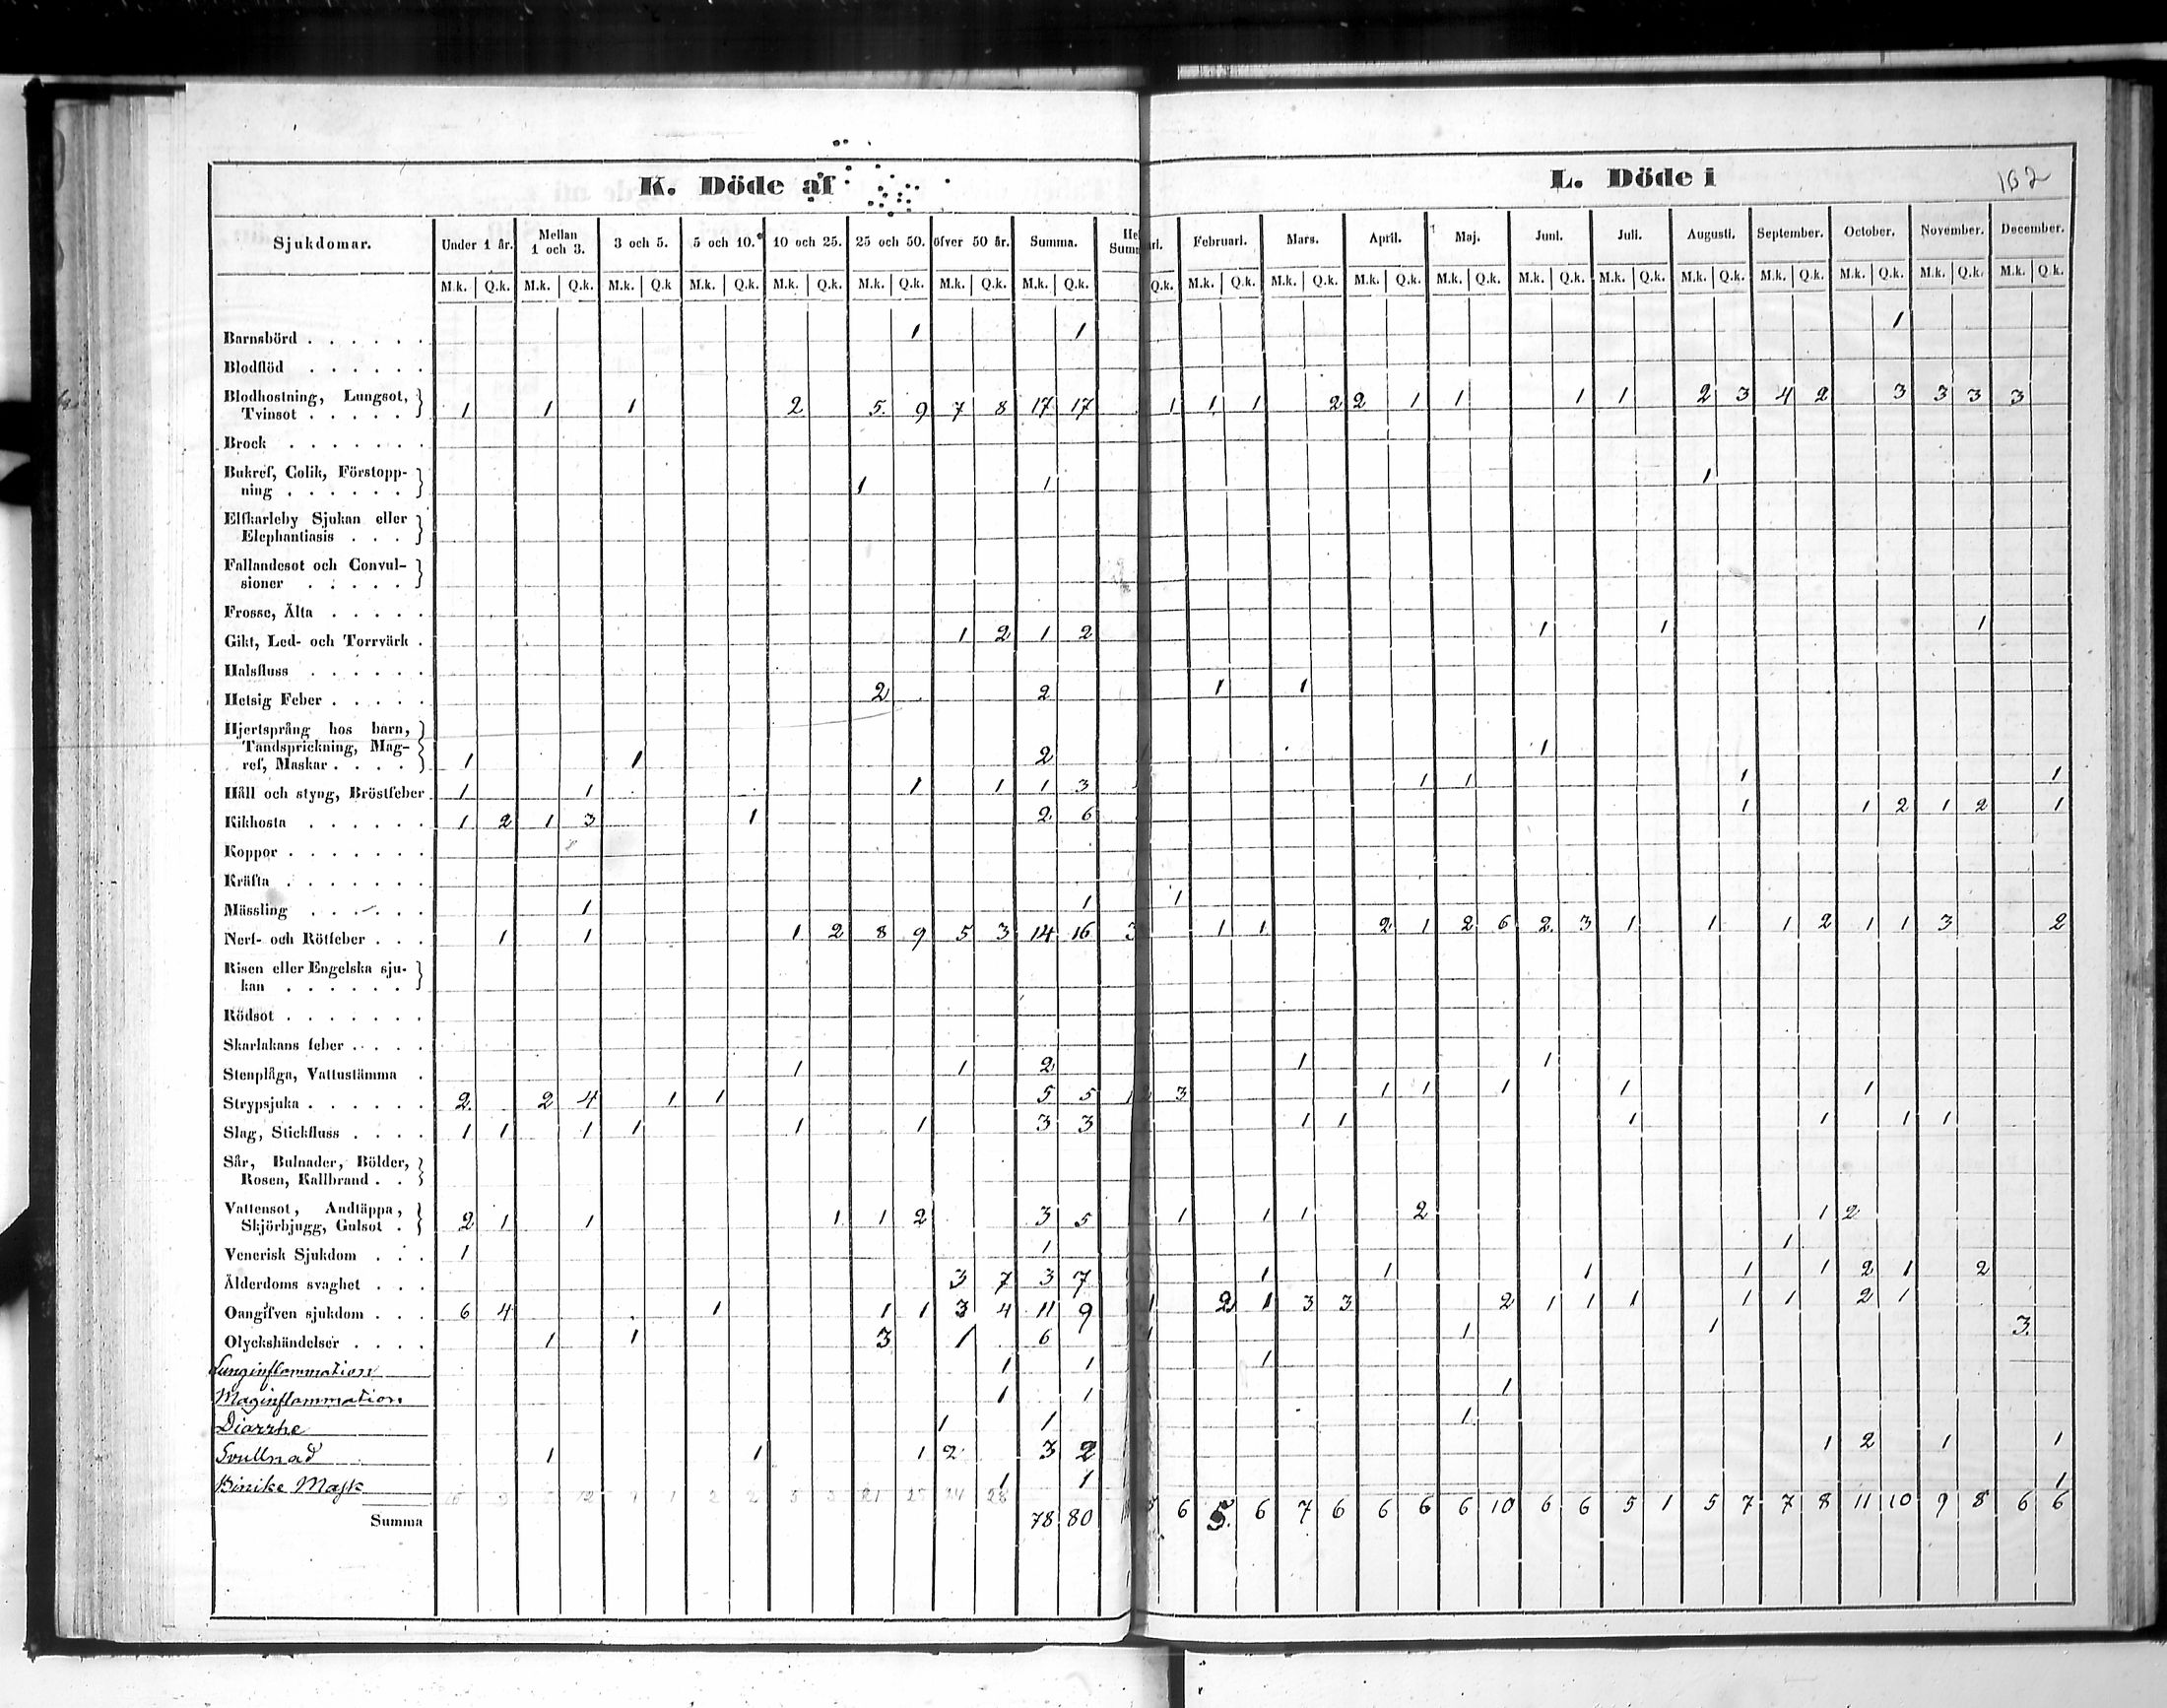 K. Döde af
L. Döde i 102
Sjukdomar. Under 1 år. Mellan 1 och 3. 3 och 5. 5 och 10. 10 och 25. 25 och 50. öfver 50 år. Summa. Februari. Mars. April. Maj. Juni. Juli. Augusti. September. October. November. December.
M.k. Q.k. M.k. Q.k. M.k. Q.k M.k. Q.k. M.k. Q.k. M.k. Q.k. M.k. Q.k. M.k. Q.k. Q.k. M.k. Q.k. M.k. Q.k. M.k. Q.k. M.k. Q.k. M.k. Q.k. M.k. Q.k. M.k. Q.k. M.k. Q.k. M.k. Q.k. M.k. Q.k. M.k. Q.k.
Barnsbörd 1 1 1
Blodflöd
Blodhostning, Lungsot,
Tvinsot 1 1 1 2 5 9 7 8 17 17 1 1 1 2 2 1 1 1 1 2 3 4 2 3 3 3 3
Brock
Bukref, Colik, Förstopp-
ning 1 1 1
Elfkarleby Sjukan eller
Elephantiasis
Fallandesot och Convul-
sioner
Frosse, Älta
Gikt, Led- och Torrvärk 1 2 1 2 1 1 1
Halsfluss
Hetsig Feber 2 2 1 1
Hjertsprång hos barn,
Tandsprickning, Mag-
ref, Maskar 1 1 2 1 1
Håll och styng, Bröstfeber 1 1 1 1 1 3 1 1 1 1
Kikhosta 1 2 1 3 1 2 6 1 1 2 1 2 1
Koppor
Kräfta
Mässling 1 1 1
Nerf- och Rötfeber 1 1 1 2 8 9 5 3 14 16 3 1 1 2 1 2 6 2 3 1 1 1 2 1 1 3 2
Risen eller Engelska sju-
kan
Rödsot
Skarlakans feber
Stenplåga, Vattustämma 1 1 2 1 1
Strypsjuka 2 2 4 1 1 5 5 1 2 3 1 1 1 1 1
Slag, Stickfluss 1 1 1 1 1 1 3 3 1 1 1 1 1 1
Sår, Bulnader, Bölder,
Rosen, Kallbrand
Vattensot, Andtäppa,
Skjörbjugg, Gulsot 2 1 1 1 1 2 3 5 1 1 1 2 1 2
Venerisk Sjukdom 1 1 1
Ålderdoms svaghet 3 7 3 7 1 1 1 1 1 2 1 2
Oangifven sjukdom 6 4 1 1 1 3 4 11 9 1 2 1 3 3 2 1 1 1 1 1 2 1
Olyckshändelser 1 1 3 1 6 1 1 1 3
Lunginflammation 1 1 1
Maginflammation 1 1 1
Diarrhe 1 1 1
Svullnad 1 1 1 2 3 2 1 2 1 1
Binike Mask 1 1 1
Summa 78 80 5 6 5 6 7 6 6 6 6 10 6 6 5 1 5 7 7 8 11 10 9 8 6 6